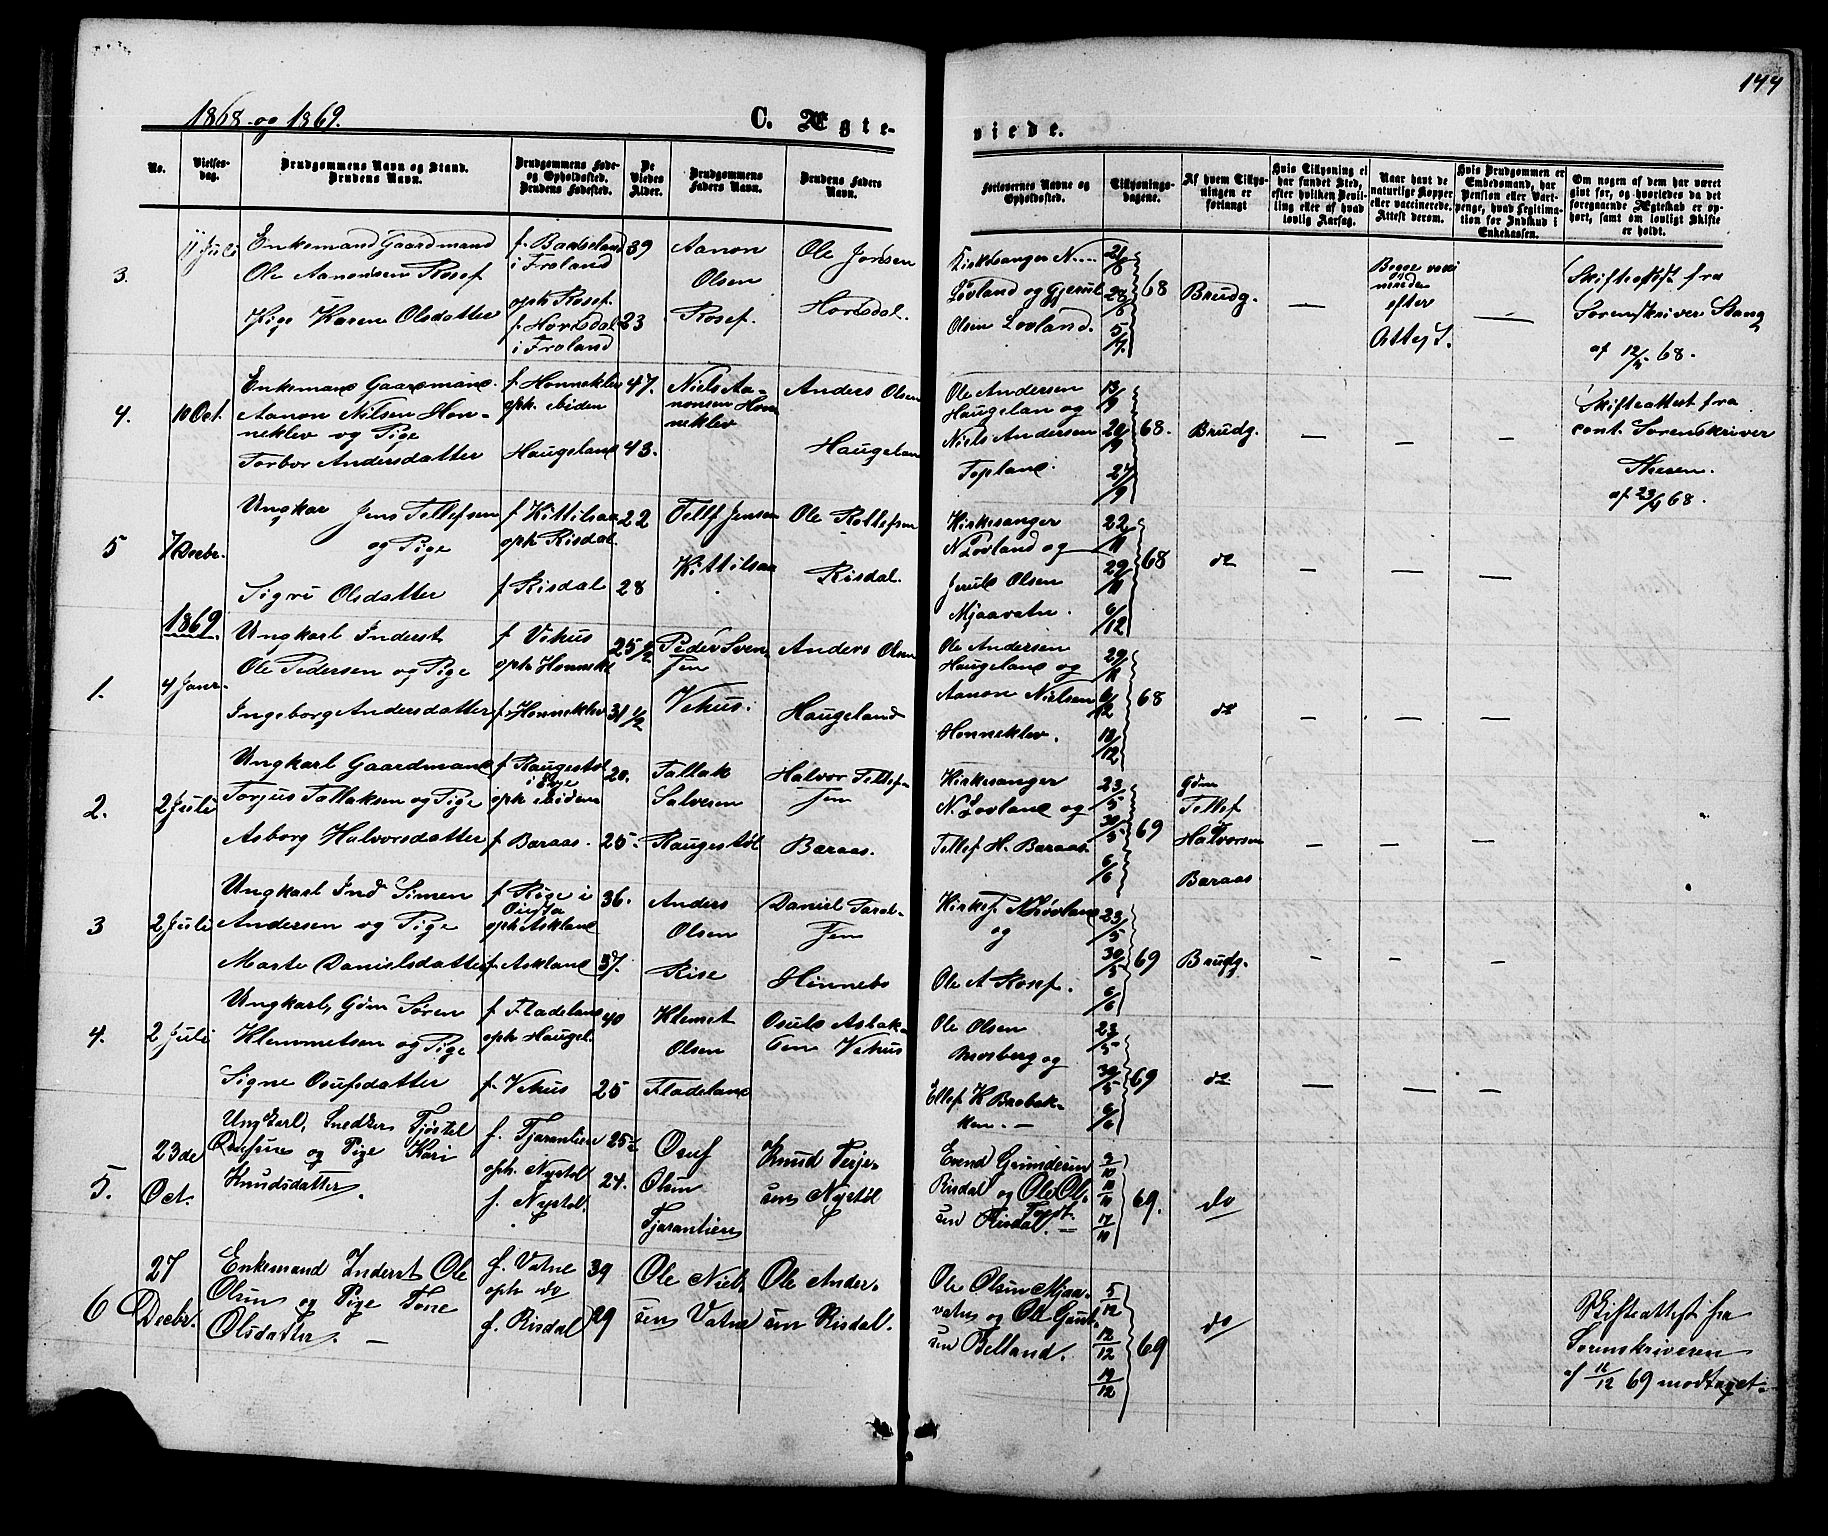 144
1868 og 1869.
C. Ægte-
viede.
No.
Vielses-
dag.
Brudgommens Navn og Stand.
Brudens Navn.
Brudgommens Føde-
og Opholdssted.
Brudens Fødested.
De
Viedes
Alder.
Brudgommens
Faders Navn.
Brudens Faders
Navn.
Forlovernes Navne og
Opholdssted.
Tillysnings-
dagene.
Af hvem Tillys-
ningen er
forlangt
Hvis Tillysning ei
har fundet Sted,
efter hvilken Bevil-
ling eller af hvad
lovlig Aarsag.
Naar havt de
naturlige Kopper
eller vaccinerede.
Attest derom.
Hvis Brudgommen er
Embedsmand, har
Pension eller Vart-
penge, hvad Legitima-
tion for Indskud i
Enkekassen.
Om nogen af dem har været
gift før, og hvorledes da det
foregaaende Ægteskab er op-
hørt, samt om lovligt Skifte
er holdt.
3.
11 Juli
Enkemand Gaardmand
Ole Aanonsen Rosef
Pige Karen Olsdatter
f. Baaseland
i Froland
oph Rosef.
f. Hovisdal
i Froland
39
23
Aanon
Olsen
Rosef.
Ole Jonsen
Hovisdal.
Kirkesanger N
Løvland og Gjerul
Olsen Løvland.
21/6
28/6
5/7.
68
Brudg.
—
Begge vacci
nerede
efter
Attest.
—
Skifteattest fra
Sorenskriver Stang
af 12/5 68.
4.
10 Oct.
Enkemand Gaardmand
Aanon Nilsen Hon-
neklev og Pige
Torbor Andersdatter
f. Honneklev
oph. ibiden
Haugeland
47.
43.
Niels Aa-
nonsen Hon
neklev
Anders Olsen
Haugeland
Ole Andersen
Haugelan og
Niels Andersen
Topland.
13/9
20/9
27/9
68.
Brudg.
—
—
—
Skifteattest fra
const. Sorenskriver
Thesen.
af 23/9 68.
5
7 Decbr.
Ungkar Jens Tellefsen
og Pige
Sigri Olsdatter
f Kittilsaa
oph Risdal
f Risdal
22
28
Tellf Jensen
Kittilsaa
Ole Rollefsen
Risdal.
Kirkesanger
N Løvland og
Jeruld Olsen
Mjaavatn.
22/11
29/11
6/12
68
do
—
—
—
1869.
1.
4 Janr.
Ungkarl Inderst
Ole Pedersen og Pige
Ingeborg Andersdatter
f Vehus
oph Honnekl
f. Honneklev
25 1/2
31 1/2
Peder Sven
sen
Vehus.
Anders Olsen
Haugeland
Ole Andersen
Haugeland og
Aanon Nielsen
Honneklev.
29/11
6/12
13/12
68
do
—
—
—
2.
2 Juli
Ungkarl Gaardmand
Torjus Tallaksen og Pige
Asborg Halvorsdatter
f Raugestøl
i Evje
oph ibidem
f Baraas.
20.
25.
Tallak
Salvesen
Raugestøl
Halvor Tellef-
sen
Baraas.
Kirkesanger
N. Løvland og
Tellef H. Baraas
23/5
30/5
6/6
69
Gdm
Tellef
Halvorsen
Baraas
—
—
—
3
2 Juli
Ungkarl Ind Simen
Andersen og Pige
Marte Danielsdatter
f Rise i
oph Askland
f. Askland
36.
37.
Anders
Olsen
Rise
Daniel Tarel-
sen
Hinnebo
Kirkes N Løvland
og
Ole A Rosef.
23/5
30/5
6/6
69
Brudg.
—
—
—
4.
2 Juli
Ungkarl, Gdm Søren
Klemmetsen og Pige
Signe Osufsdatter
f Fladeland
oph Haugel.
f. Vehus
40
25
Klemet
Olsen
Fladeland
Osuld Aslak-
sen Vehus
Ole Olsen
Mosberg og
Ellef K Brobak-
ken. —
23/5
30/5
6/6
69
do
—
—
—
5.
23de
Oct.
Ungkarl, Snedker Tjøstel
Osufsen og Pige Kari
Knudsdatter.
f. Tjaranlien
oph. Nystøl
f. Nystøl.
25 1/2
24.
Osuf
Olsen
Tjaranlien
Knud Terje-
sen Nystøl
Evend Gunderen
Risdal og Ole Ol-
sen Risdal. —
3/10
10/10
17/10
69.
do
6
27
Decbr.
Enkemand Inderst Ole
Olsen og Pige Tone
Olsdatter. —
f. Vatne
oph do
f. Risdal
39
29
Ole Niel
sen Vatne
Ole Ander-
sen Risdal.
Ole Olsen Mjaa-
vatn og Ole Gunt
sen Belland.
5/12
12/12
19/12
69
do
Skifteattest fra
Sorenskriveren
af 11/12 69 modtaget.